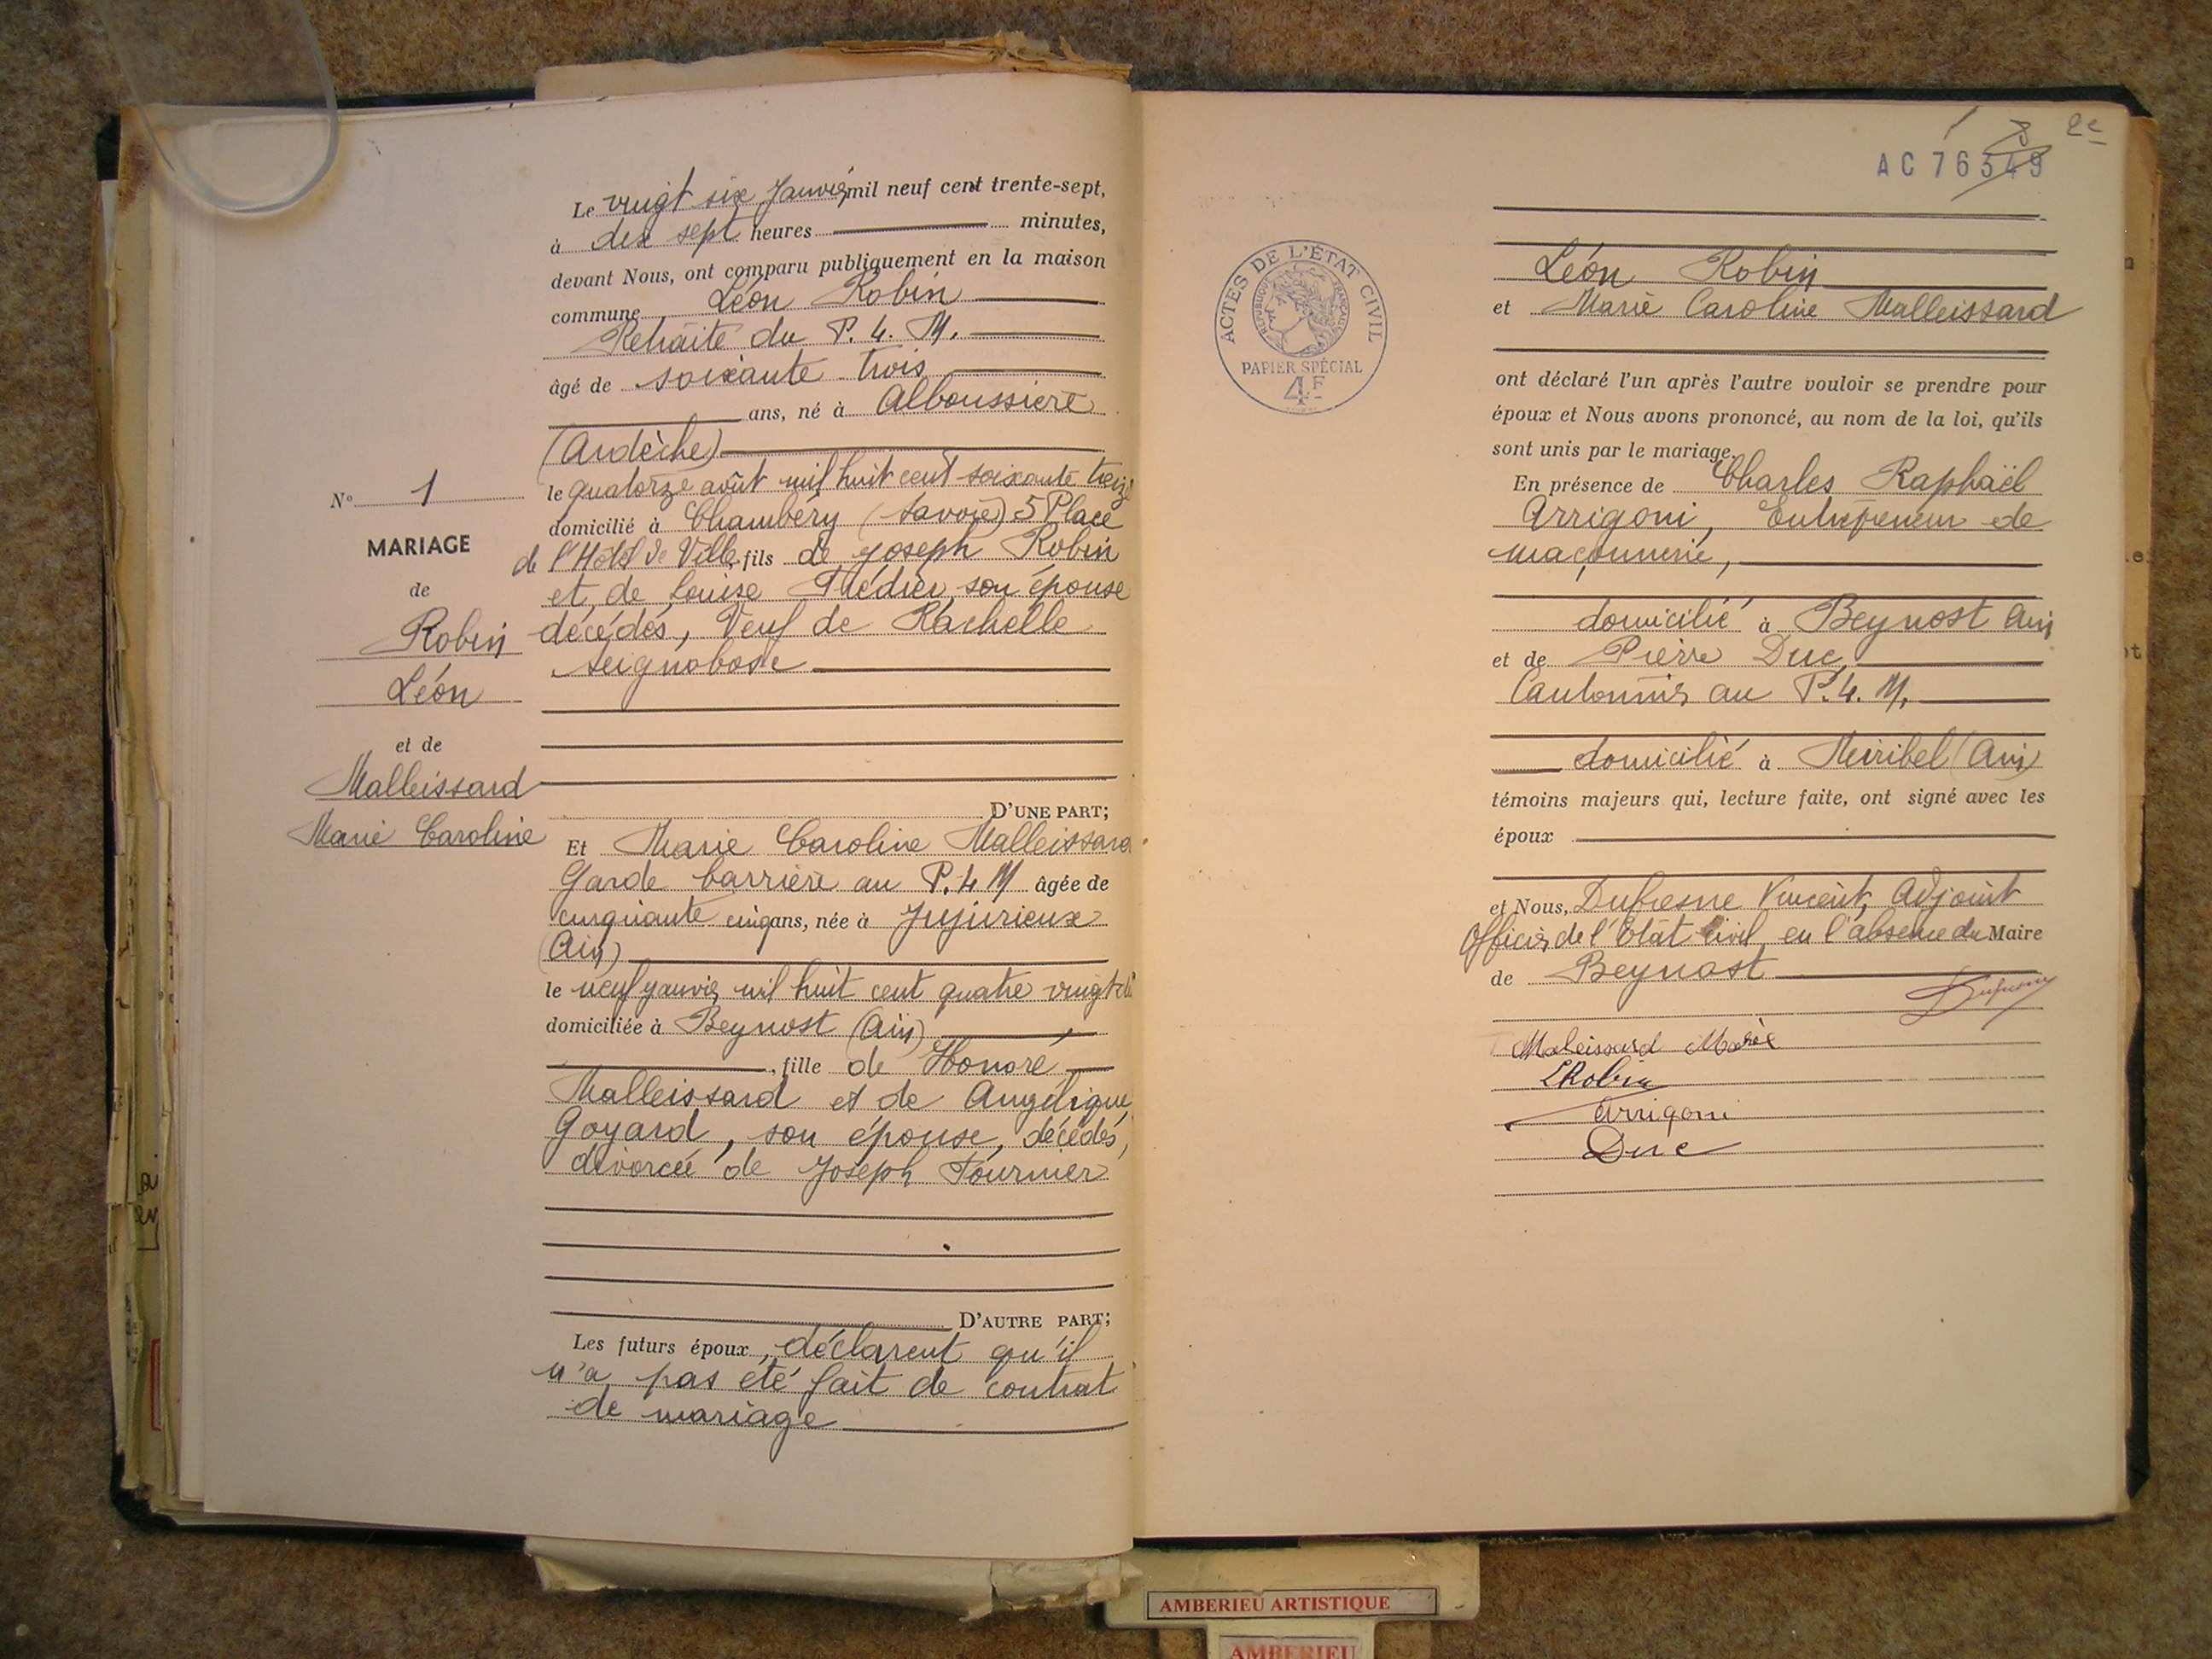 Le vingt six Janvier mil neuf cent trente-sept,
à dix sept heures minutes,
devant Nous, ont comparu publiquement en la maison
commune Léon Robin
Retraité du P. L. M.
âgé de soixante trois
ans, né à Alboussière
(Ardèche)
le quatorze août mil huit cent soixante treize
domicilié à Chambéry (Savoie) 5 Place
de l'Hôtel de Ville, fils de Joseph Robin
et de Louise son épouse
décédés, Veuf de Rachelle
Seignobosc
D'UNE PART;
N° 1
MARIAGE
de
Robin
Léon
et de
Malleissard
Marie Caroline
Et Marie Caroline Malleissard
Garde barrière au P. L. M âgée de
cinquante cinq ans, née à Jujurieux
(Ain)
le neuf janvier mil huit cent quatre vingt
domiciliée à Beynost (Ain)
, fille de Honoré
Malleissard et de Angélique
Goyard, son épouse, décédés,
divorcée de Joseph Fournier
D'AUTRE PART;
Les futurs époux, déclarent qu'il
n'a pas été fait de contrat
de mariage
2e
AC 76349
ACTES DE L'ÉTAT CIVIL
RÉPUBLIQUE FRANÇAISE
PAPIER SPÉCIAL
4F
Léon Robin
et Marie Caroline Malleissard
ont déclaré l'un après l'autre vouloir se prendre pour
époux et Nous avons prononcé, au nom de la loi, qu'ils
sont unis par le mariage.
En présence de Charles Raphaël
Arrigoni, Entrepreneur de
maçonnerie,
domicilié à Beynost Ain
et de Pierre Duc,
Cantonnier au P. L. M.
domicilié à Miribel (Ain)
témoins majeurs qui, lecture faite, ont signé avec les
époux
et Nous, Dufresne Vincent, Adjoint
Officier de l'Etat civil, en l'absence du Maire
de Beynost
Dufresne
Maleissard Marie
LRobin
Arrigoni
Duc
AMBERIEU ARTISTIQUE
AMBERIEU